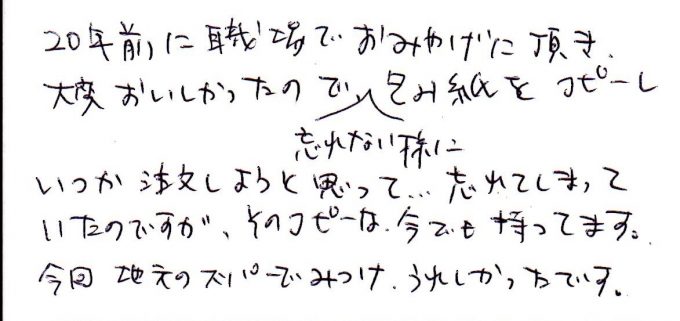 20年前に職場でおみやげに頂き、
大変おいしかったので包み紙をコピーし
忘れない様に
いつか注文しようと思って…忘れてしまって
いたのですが、そのコピーは、今でも持ってます。
今回地元のスーパーでみつけ、うれしかったです。